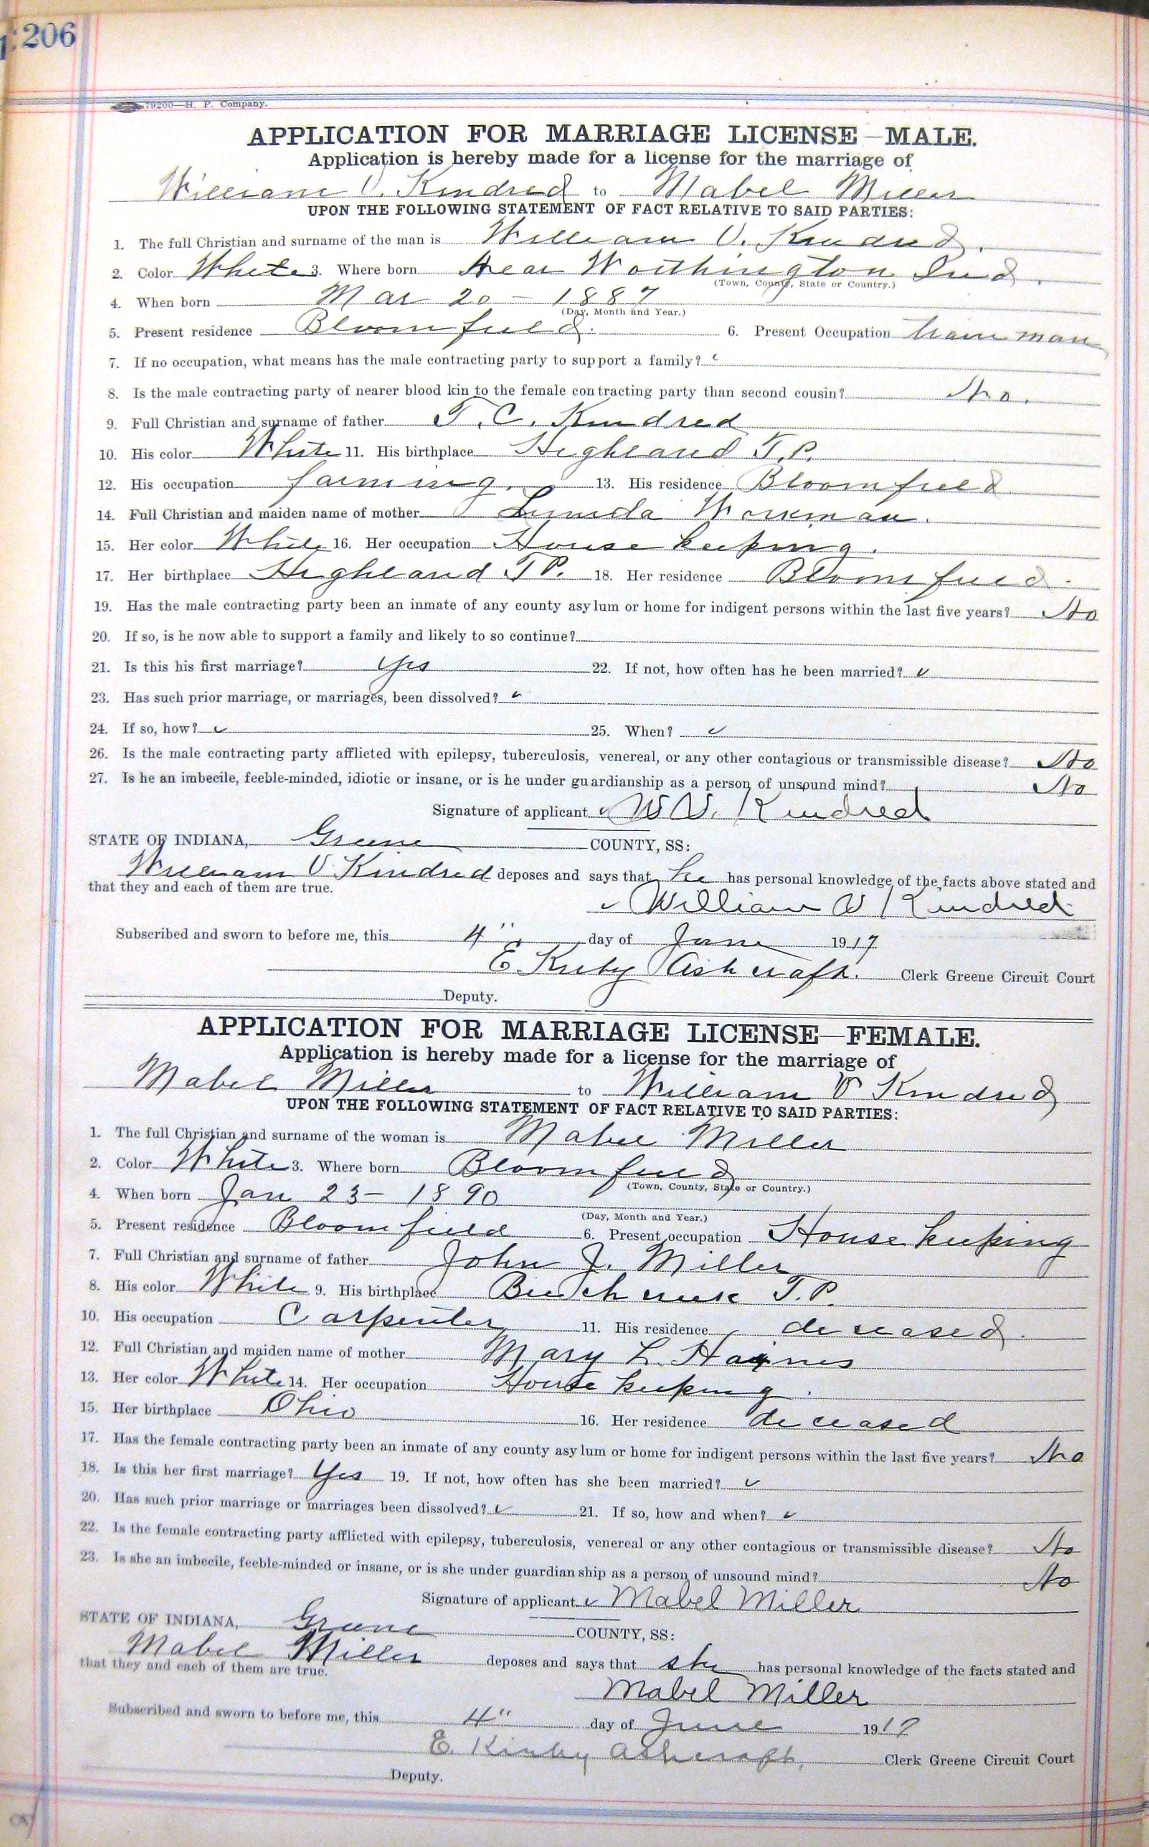 206
79200—H. P. Company.
APPLICATION FOR MARRIAGE LICENSE—MALE.
Application is hereby made for a license for the marriage of
William V. Kindred to Mabel Miller
UPON THE FOLLOWING STATEMENT OF FACT RELATIVE TO SAID PARTIES:
1. The full Christian and surname of the man is William V. Kindred.
2. Color White 3. Where born Near Worthington Ind.
(Town, County, State or Country.)
4. When born Mar 20 - 1887
(Day, Month and Year.)
5. Present residence Bloomfield. 6. Present Occupation trainman
7. If no occupation, what means has the male contracting party to support a family?
8. Is the male contracting party of nearer blood kin to the female contracting party than second cousin? No.
9. Full Christian and surname of father T. C. Kindred
10. His color White 11. His birthplace Highland T.P.
12. His occupation farming. 13. His residence Bloomfield
14. Full Christian and maiden name of mother Workman.
15. Her color White 16. Her occupation House keeping.
17. Her birthplace Highland T P. 18. Her residence Bloomfield.
19. Has the male contracting party been an inmate of any county asylum or home for indigent persons within the last five years? No
20. If so, is he now able to support a family and likely to so continue?
21. Is this his first marriage? Yes 22. If not, how often has he been married? ✓
23. Has such prior marriage, or marriages, been dissolved? ✓
24. If so, how? ✓ 25. When? ✓
26. Is the male contracting party afflicted with epilepsy, tuberculosis, venereal, or any other contagious or transmissible disease? No
27. Is he an imbecile, feeble-minded, idiotic or insane, or is he under guardianship as a person of unsound mind? No
Signature of applicant ✓ W. V. Kindred
STATE OF INDIANA, Greene COUNTY, SS:
William V. Kindred deposes and says that he has personal knowledge of the facts above stated and
that they and each of them are true.
✓ William V Kindred
Subscribed and sworn to before me, this 4" day of June 1917
E Kirby Ashcraft. Clerk Greene Circuit Court
Deputy.
APPLICATION FOR MARRIAGE LICENSE—FEMALE.
Application is hereby made for a license for the marriage of
Mabel Miller to William V Kindred
UPON THE FOLLOWING STATEMENT OF FACT RELATIVE TO SAID PARTIES:
1. The full Christian and surname of the woman is Mabel Miller
2. Color White 3. Where born Bloomfield
(Town, County, State or Country.)
4. When born Jan 23 - 1890
(Day, Month and Year.)
5. Present residence Bloomfield 6. Present occupation House keeping
7. Full Christian and surname of father John J. Miller
8. His color White 9. His birthplace Beech creek T.P.
10. His occupation Carpenter 11. His residence deceased.
12. Full Christian and maiden name of mother Mary L. Haines
13. Her color White 14. Her occupation House keeping.
15. Her birthplace Ohio 16. Her residence deceased
17. Has the female contracting party been an inmate of any county asylum or home for indigent persons within the last five years? No
18. Is this her first marriage? Yes 19. If not, how often has she been married? ✓
20. Has such prior marriage or marriages been dissolved? ✓ 21. If so, how and when? ✓
22. Is the female contracting party afflicted with epilepsy, tuberculosis, venereal or any other contagious or transmissible disease? No
23. Is she an imbecile, feeble-minded or insane, or is she under guardianship as a person of unsound mind? No
Signature of applicant ✓ Mabel Miller
STATE OF INDIANA, Greene COUNTY, SS:
Mabel Miller deposes and says that she has personal knowledge of the facts stated and
that they and each of them are true.
Mabel Miller
Subscribed and sworn to before me, this 4" day of June 1917
E. Kirby Ashcraft, Clerk Greene Circuit Court
Deputy.